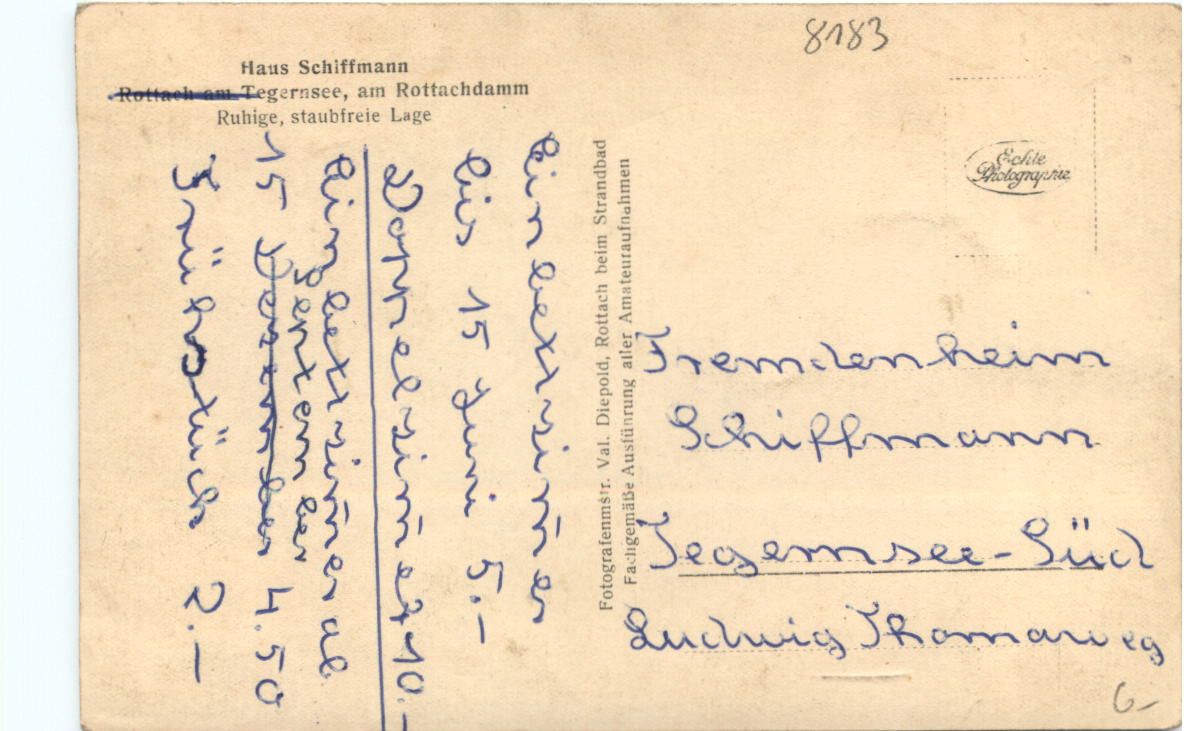 8183
Haus Schiffmann
Rottach am Tegernsee, am Rottachdamm
Ruhige, staubfreie Lage
Einbettzimer
bis 15 Juni 5.-
Doppelzimer 10.-
Einbettzimer ab
September
15 Dezember 4.50
Frühstück 2.-
Fotografenmstr. Val. Diepold, Rottach beim Strandbad
Fachgemäße Ausführung aller Amateuraufnahmen
Echte
Photographie
Fremdenheim
Schiffmann
Tegernsee-Süd
Ludwig Thomaweg
6-